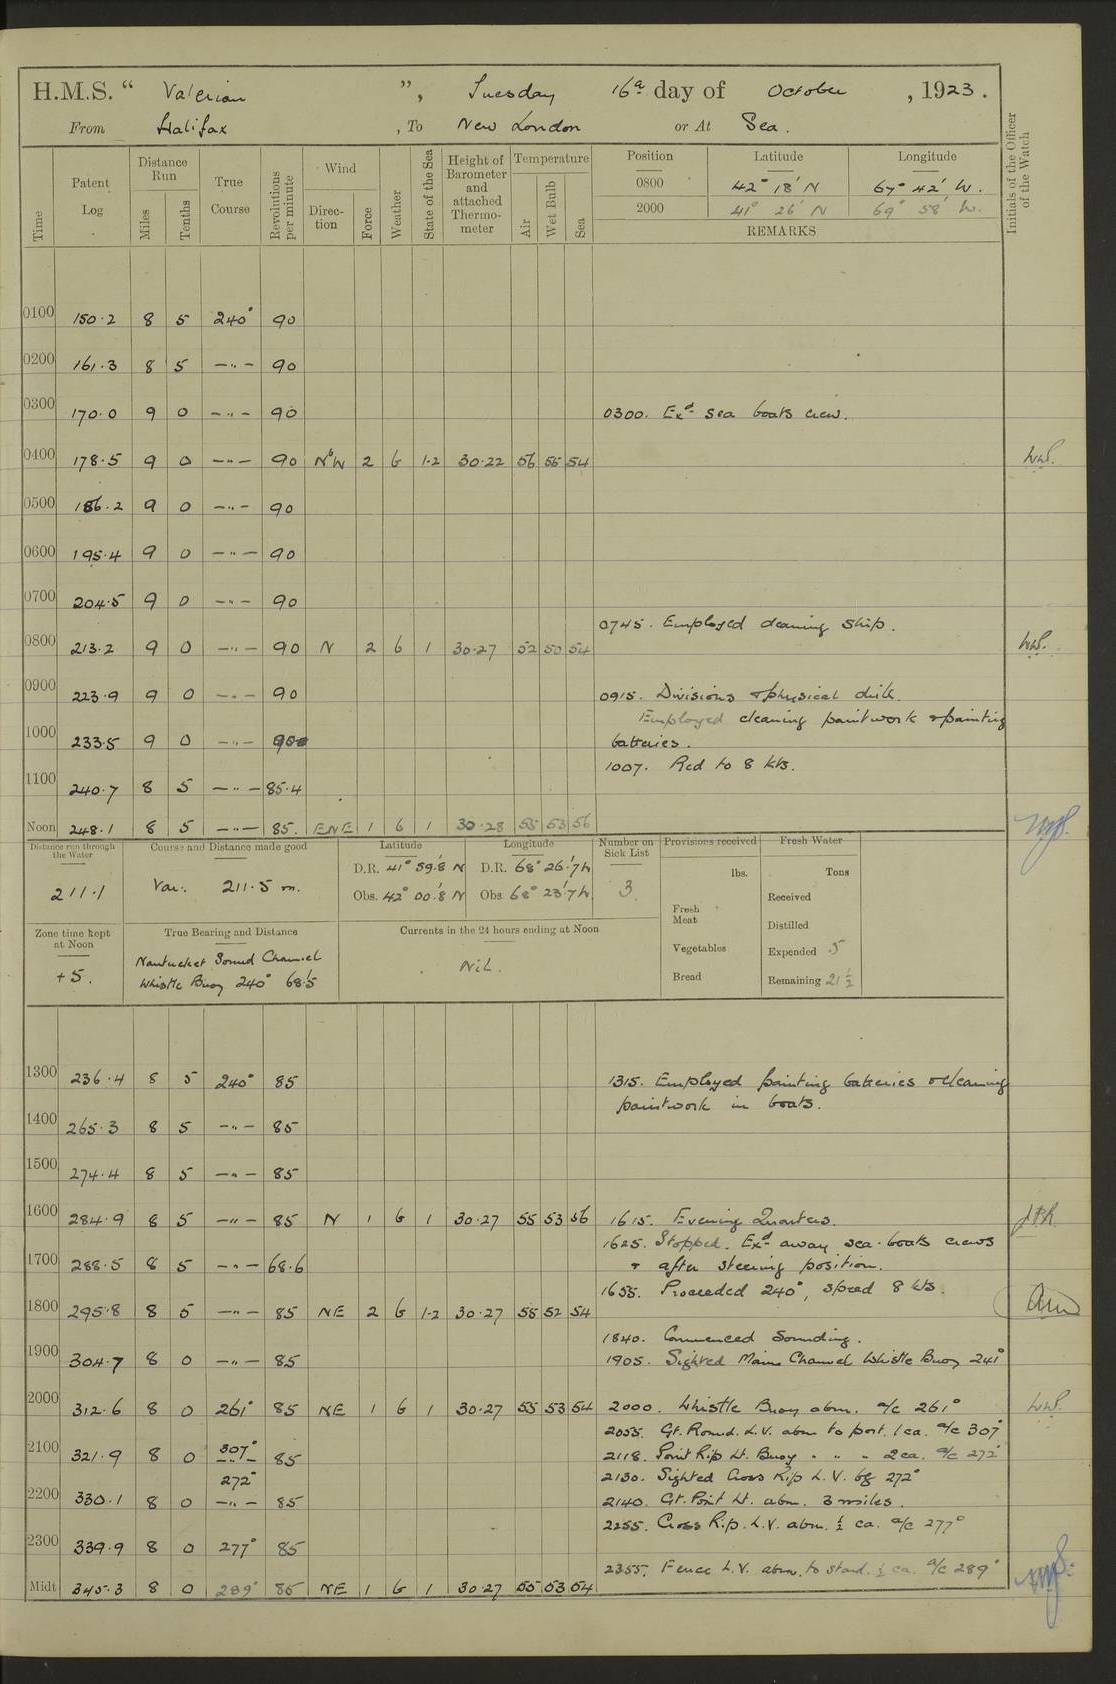 H.M.S. “ Valerian ”, Tuesday 16th day of October, 1923.
From Halifax, To New London or At Sea.
Time
Patent Log
Distance Run
Miles
Tenths
True Course
Revolutions per minute
Wind
Direction
Force
Weather
State of the Sea
Height of Barometer and attached Thermometer
Temperature
Air
Wet Bulb
Sea
Position Latitude Longitude
0800 42° 18' N 67° 42' W.
2000 41° 26' N 69° 58' W.
REMARKS
Initials of the Officer of the Watch
0100 150·2 8 5 240° 90
0200 161·3 8 5 —"— 90
0300 170·0 9 0 —"— 90 0300. Exd sea boats crew.
0400 178·5 9 0 —"— 90 NbW 2 b 1·2 30·22 56 55 54
0500 186·2 9 0 —"— 90
0600 195·4 9 0 —"— 90
0700 204·5 9 0 —"— 90
0745. Employed cleaning ship.
0800 213·2 9 0 —"— 90 N 2 b 1 30·27 52 50 54
0900 223·9 9 0 —"— 90 0915. Divisions & physical drill.
Employed cleaning paintwork & painting
1000 233·5 9 0 —"— 90 batteries.
1007. Red to 8 kts.
1100 240·7 8 5 —"— 85·4
Noon 248·1 8 5 —"— 85. ENE 1 b 1 30·28 55 53 56
Distance run through the Water
211·1
Course and Distance made good
Var: 211·5 m.
Latitude
D.R. 41° 59'·8 N
Obs. 42° 00'·8 N
Longitude
D.R. 68° 26'·7 W
Obs. 68° 23'·7 W
Number on Sick List
3.
Provisions received
lbs.
Fresh Meat
Vegetables
Bread
Fresh Water
Tons
Received
Distilled
Expended 5
Remaining 21½
Zone time kept at Noon
+5.
True Bearing and Distance
Nantucket Sound Channel
Whistle Buoy 240° 68'·5
Currents in the 24 hours ending at Noon
Nil.
1300 236·4 8 5 240° 85 1315. Employed painting batteries & cleaning
paintwork in boats.
1400 265·3 8 5 —"— 85
1500 274·4 8 5 —"— 85
1600 284·9 8 5 —"— 85 N 1 b 1 30·27 55 53 56 1615. Evening Quarters.
1625. Stopped. Exd away sea-boats crews
1700 288·5 8 5 —"— 68·6 & after steering position.
1655. Proceeded 240°, speed 8 kts.
1800 295·8 8 5 —"— 85 NE 2 b 1·2 30·27 55 52 54
1840. Commenced Sounding.
1900 304·7 8 0 —"— 85 1905. Sighted Main Channel Whistle Buoy 241°
2000 312·6 8 0 261° 85 NE 1 b 1 30·27 55 53 54 2000. Whistle Buoy abm. a/c 261°
2055. Gt. Round. L.V. abm to port. 1 ca. a/c 307°
2100 321·9 8 0 307° 85 2118. Point Rip Lt. Buoy " " " 2 ca. a/c 272°
272° 2130. Sighted Cross Rip L.V. bg 272°
2200 330·1 8 0 —"— 85 2140. Gt. Point Lt. abm. 3 miles.
2255. Cross Rip. L.V. abm. ½ ca. a/c 277°
2300 339·9 8 0 277° 85
2355. Fence L.V. abm. to stard. ½ ca. a/c 289°
Midt 345·3 8 0 289° 85 NE 1 b 1 30·27 55 53 54